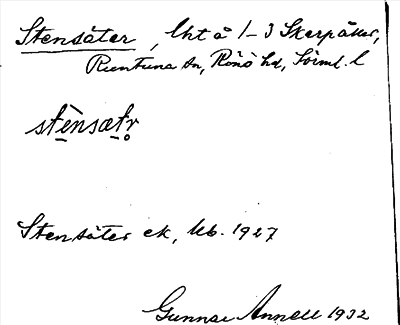 Stensäter, lht å 1–3 Skerpåker,
Runtuna sn, Rönö hd, Sörml. l
stènsætr̥
Stensäter ek, Kb. 1927
Gunnar Annell 1932